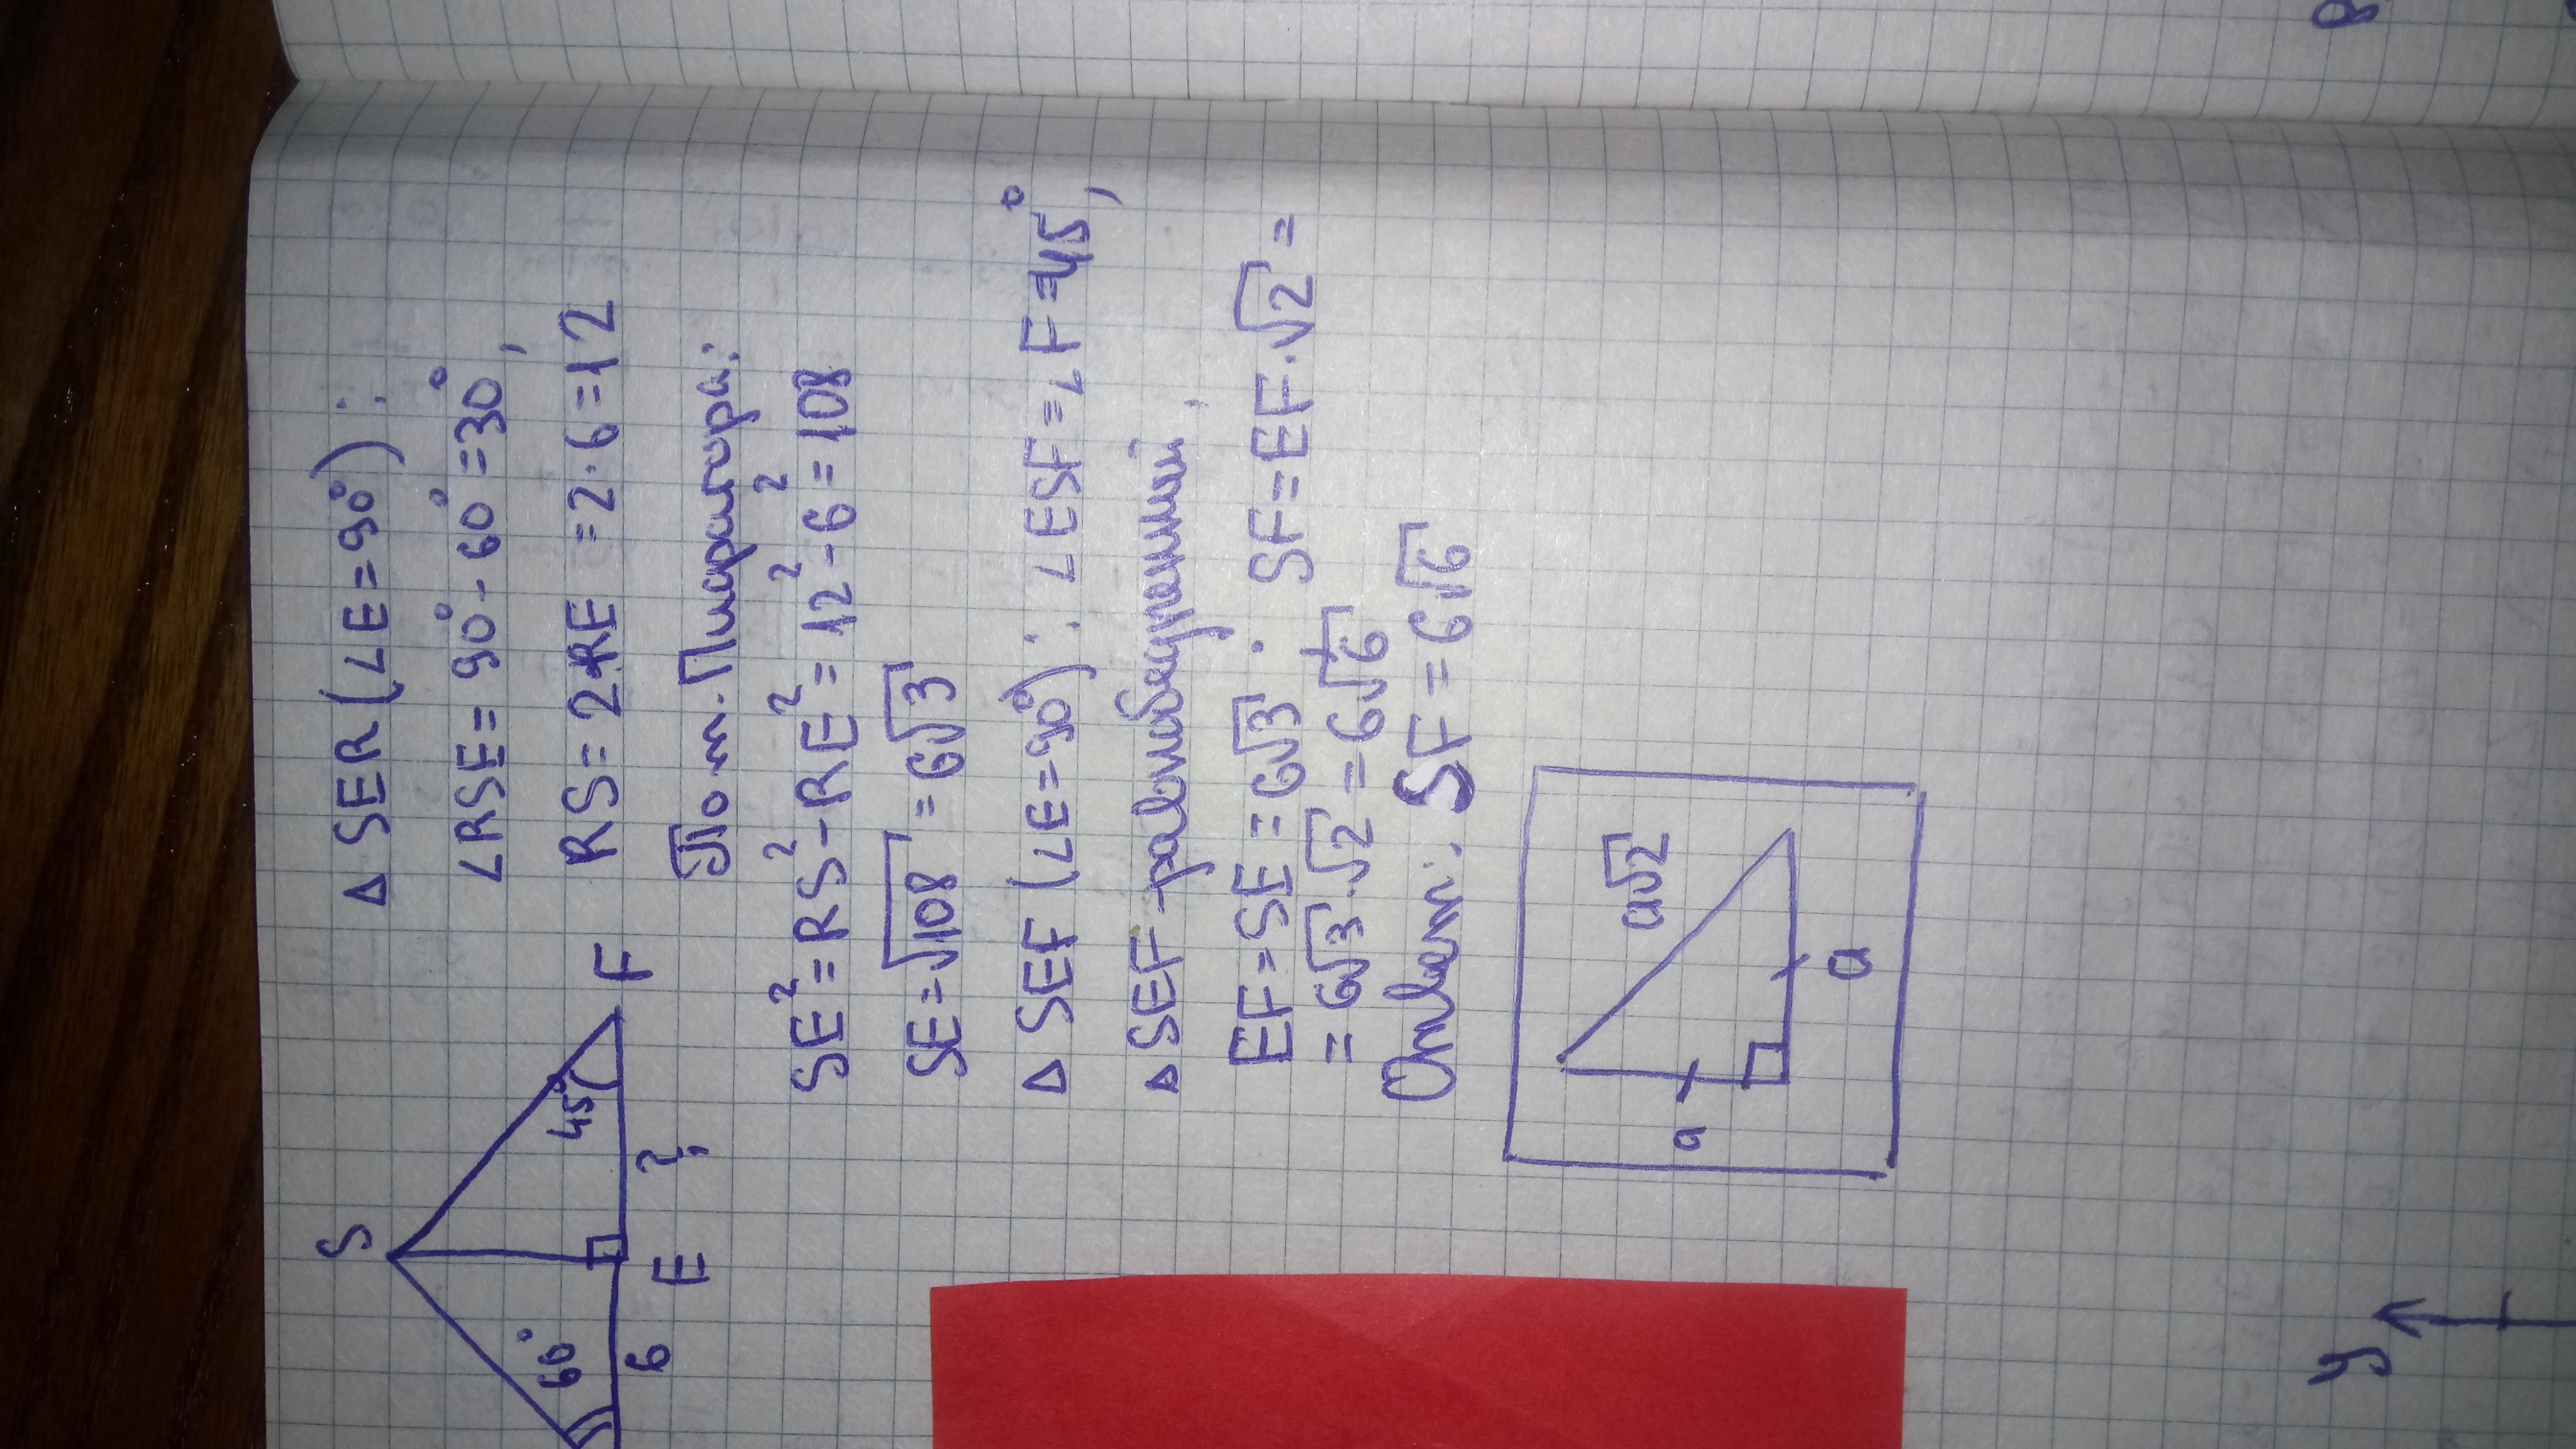 S
60°
45°
F
6
E
?
△ SER (∠E=90°):
∠RSE = 90° - 60° = 30°,
RS = 2RE = 2·6 = 12
По т. Пифагора:
SE² = RS² - RE² = 12² - 6² = 108
SE = √108 = 6√3
△ SEF (∠E=90°): ∠ESF = ∠F = 45°,
△ SEF - равнобедренный,
EF = SE = 6√3. SF = EF·√2 =
= 6√3·√2 = 6√6
Ответ: SF = 6√6
a
a√2
a
y